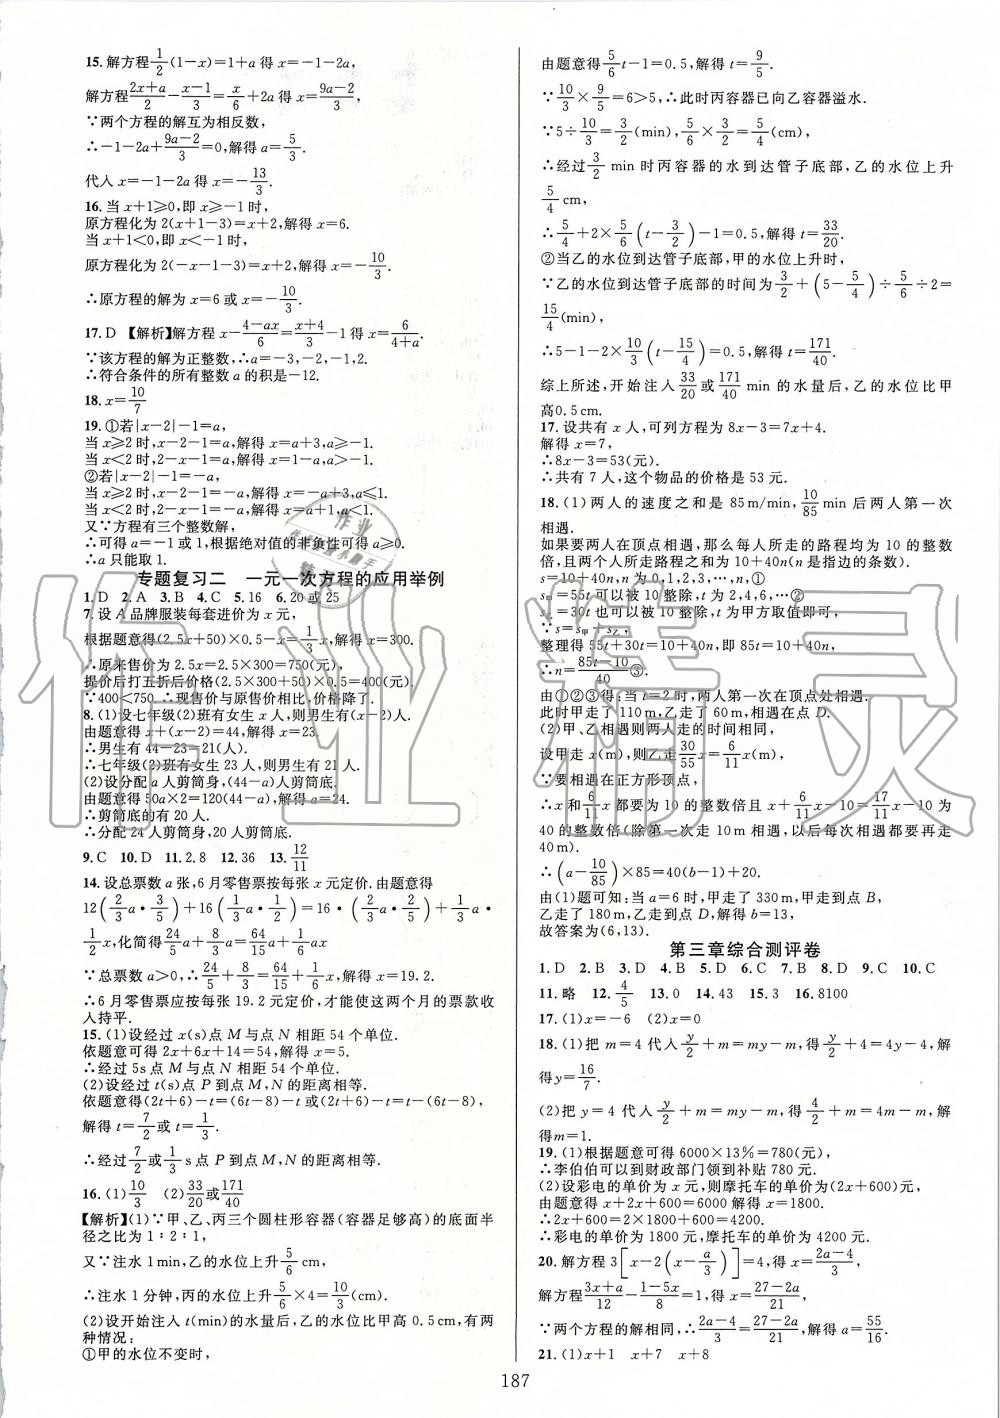 15. 解方程1/2(1−x)=1+a得x=−1−2a,
解方程(2x+a)/2−(x−1)/3=x/6+2a得x=(9a−2)/3,
∵两个方程的解互为相反数,
∴−1−2a+(9a−2)/3=0,解得a=5/3.
代入x=−1−2a得x=−13/3.
16. 当x+1≥0,即x≥−1时,
原方程化为2(x+1−3)=x+2,解得x=6.
当x+1<0,即x<−1时,
原方程化为2(−x−1−3)=x+2,解得x=−10/3.
∴原方程的解为x=6或x=−10/3.
17. D 【解析】解方程x−(4−ax)/6=(x+4)/3−1得x=6/(4+a).
∵该方程的解为正整数,∴a=−3,−2,−1,2.
∴符合条件的所有整数a的积是−12.
18. x=10/7
19. ①若|x−2|−1=a,
当x≥2时,x−2−1=a,解得x=a+3,a≥−1.
当x<2时,2−x−1=a,解得x=1−a,a>−1.
②若|x−2|−1=−a,
当x≥2时,x−2−1=−a,解得x=−a+3,a≤1.
当x<2时,2−x−1=−a,解得x=a+1,a<1.
又∵方程有三个整数解,
∴可得a=−1或1,根据绝对值的非负性可得a≥0.
∴a只能取1.
专题复习二 一元一次方程的应用举例
1. D 2. A 3. B 4. C 5. 16 6. 20或25
7. 设A品牌服装每套进价为x元,
根据题意得(2.5x+50)×0.5−x=1/3x,解得x=300.
∴原来售价为2.5x=2.5×300=750(元),
提价后打五折后价格(2.5×300+50)×0.5=400(元).
∵400<750,∴现售价与原售价相比,价格降了.
8. (1)设七年级(2)班有女生x人,则男生有(x−2)人.
由题意得x+(x−2)=44,解得x=23.
∴男生有44−23=21(人).
∴七年级(2)班有女生23人,则男生有21人.
(2)设分配a人剪筒身,(44−a)人剪筒底.
由题意得50a×2=120(44−a),解得a=24.
∴剪筒底的有20人.
∴分配24人剪筒身,20人剪筒底.
9. C 10. D 11. 2.8 12. 36 13. 12/11
14. 设总票数a张,6月零售票按每张x元定价.由题意得
12(2/3a·3/5)+16(1/3a·1/2)=16·(2/3a·2/5)+1/3a·
1/2x,化简得24/5a+8/3a=64/15a+1/6ax.
∵总票数a>0,∴24/5+8/3=64/15+1/6x,解得x=19.2.
∴6月零售票应按每张19.2元定价,才能使这两个月的票款收
入持平.
15. (1)设经过x(s)点M与点N相距54个单位.
依题意可得2x+6x+14=54,解得x=5.
∴经过5s点M与点N相距54个单位.
(2)设经过t(s)点P到点M,N的距离相等.
依题意可得(2t+6)−t=(6t−8)−t或(2t+6)−t=t−(6t−8),
解得t=7/2或t=1/3.
∴经过7/2或1/3s点P到点M,N的距离相等.
16. (1)10/3 (2)33/20或171/40
【解析】(1)∵甲、乙、丙三个圆柱形容器(容器足够高)的底面半
径之比为1∶2∶1,
又∵注水1min,乙的水位上升5/6cm,
∴注水1分钟,丙的水位上升5/6×4=10/3(cm).
(2)设开始注入t(min)的水量后,乙的水位比甲高0.5cm,有两
种情况:
①甲的水位不变时,
由题意得5/6t−1=0.5,解得t=9/5.
∵10/3×9/5=6>5,∴此时丙容器已向乙容器溢水.
∵5÷10/3=3/2(min),5/6×3/2=5/4(cm),
∴经过3/2min时丙容器的水到达管子底部,乙的水位上升
5/4cm,
∴5/4+2×5/6(t−3/2)−1=0.5,解得t=33/20.
②当乙的水位到达管子底部,甲的水位上升时,
∵乙的水位到达管子底部的时间为3/2+(5−5/4)÷5/6÷2=
15/4(min),
∴5−1−2×10/3(t−15/4)=0.5,解得t=171/40.
综上所述,开始注入33/20或171/40min的水量后,乙的水位比甲
高0.5cm.
17. 设共有x人,可列方程为8x−3=7x+4.
解得x=7,
∴8x−3=53(元).
∴共有7人,这个物品的价格是53元.
18. (1)两人的速度之和是85m/min,10/85min后两人第一次
相遇.
如果要两人在顶点相遇,那么每人所走的路程均为10的整数
倍,且两人走路程之和为10+40n(n是指边的条数).
s=10+40n,①
s甲=55t也可以被10整除,t为2,4,6,…②
s乙=30t也可以被10整除,t为甲方取值即可,
∵s=s甲+s乙,
整理得55t+30t=10+40n,即85t=10+40n,
∴n=(85t−10)/40③.
由①②③得:当t=2时,两人第一次在顶点处相遇.
此时甲走了110m,乙走了60m,相遇在点D.
(2)甲、乙相遇则两人走的时间相同,
设甲走x(m),则乙走30/55x=6/11x(m),
∵要相遇在正方形顶点,
∴x和6/11x都要为10的整数倍且x+6/11x−10=17/11x−10为
40的整数倍(除第一次走10m相遇,以后每次相遇都要再走
40m).
∴(a−10/85)×85=40(b−1)+20.
由(1)题可知:当a=6时,甲走了330m,甲走到点B,
乙走了180m,乙走到点D,解得b=13,
故答案为(6,13).
第三章综合测评卷
1. D 2. B 3. D 4. B 5. D 6. C 7. B 8. D 9. C 10. C
11. 略 12. 4/5 13. 0 14. 43 15. 3 16. 8100
17. (1)x=−6 (2)x=0
18. (1)把m=4代入y/2+m=my−m,得y/2+4=4y−4,解
得y=16/7.
(2)把y=4代入y/2+m=my−m,得4/2+m=4m−m,解
得m=1.
19. (1)根据题意可得6000×13%=780(元).
∴李伯伯可以到财政部门领到补贴780元.
(2)设彩电的单价为x元,则摩托车的单价为(2x+600)元,
由题意得x+2x+600=6000解得x=1800.
∴2x+600=2×1800+600=4200.
∴彩电的单价为1800元,摩托车的单价为4200元.
20. 解方程3[x−2(x−a/3)]=4,得x=(2a−4)/3,
解方程(3x+a)/12−(1−5x)/8=1,得x=(27−2a)/21,
∵两个方程的解相同,∴(2a−4)/3=(27−2a)/21,解得a=55/16.
21. (1)x+1 x+7 x+8
187
作业精灵